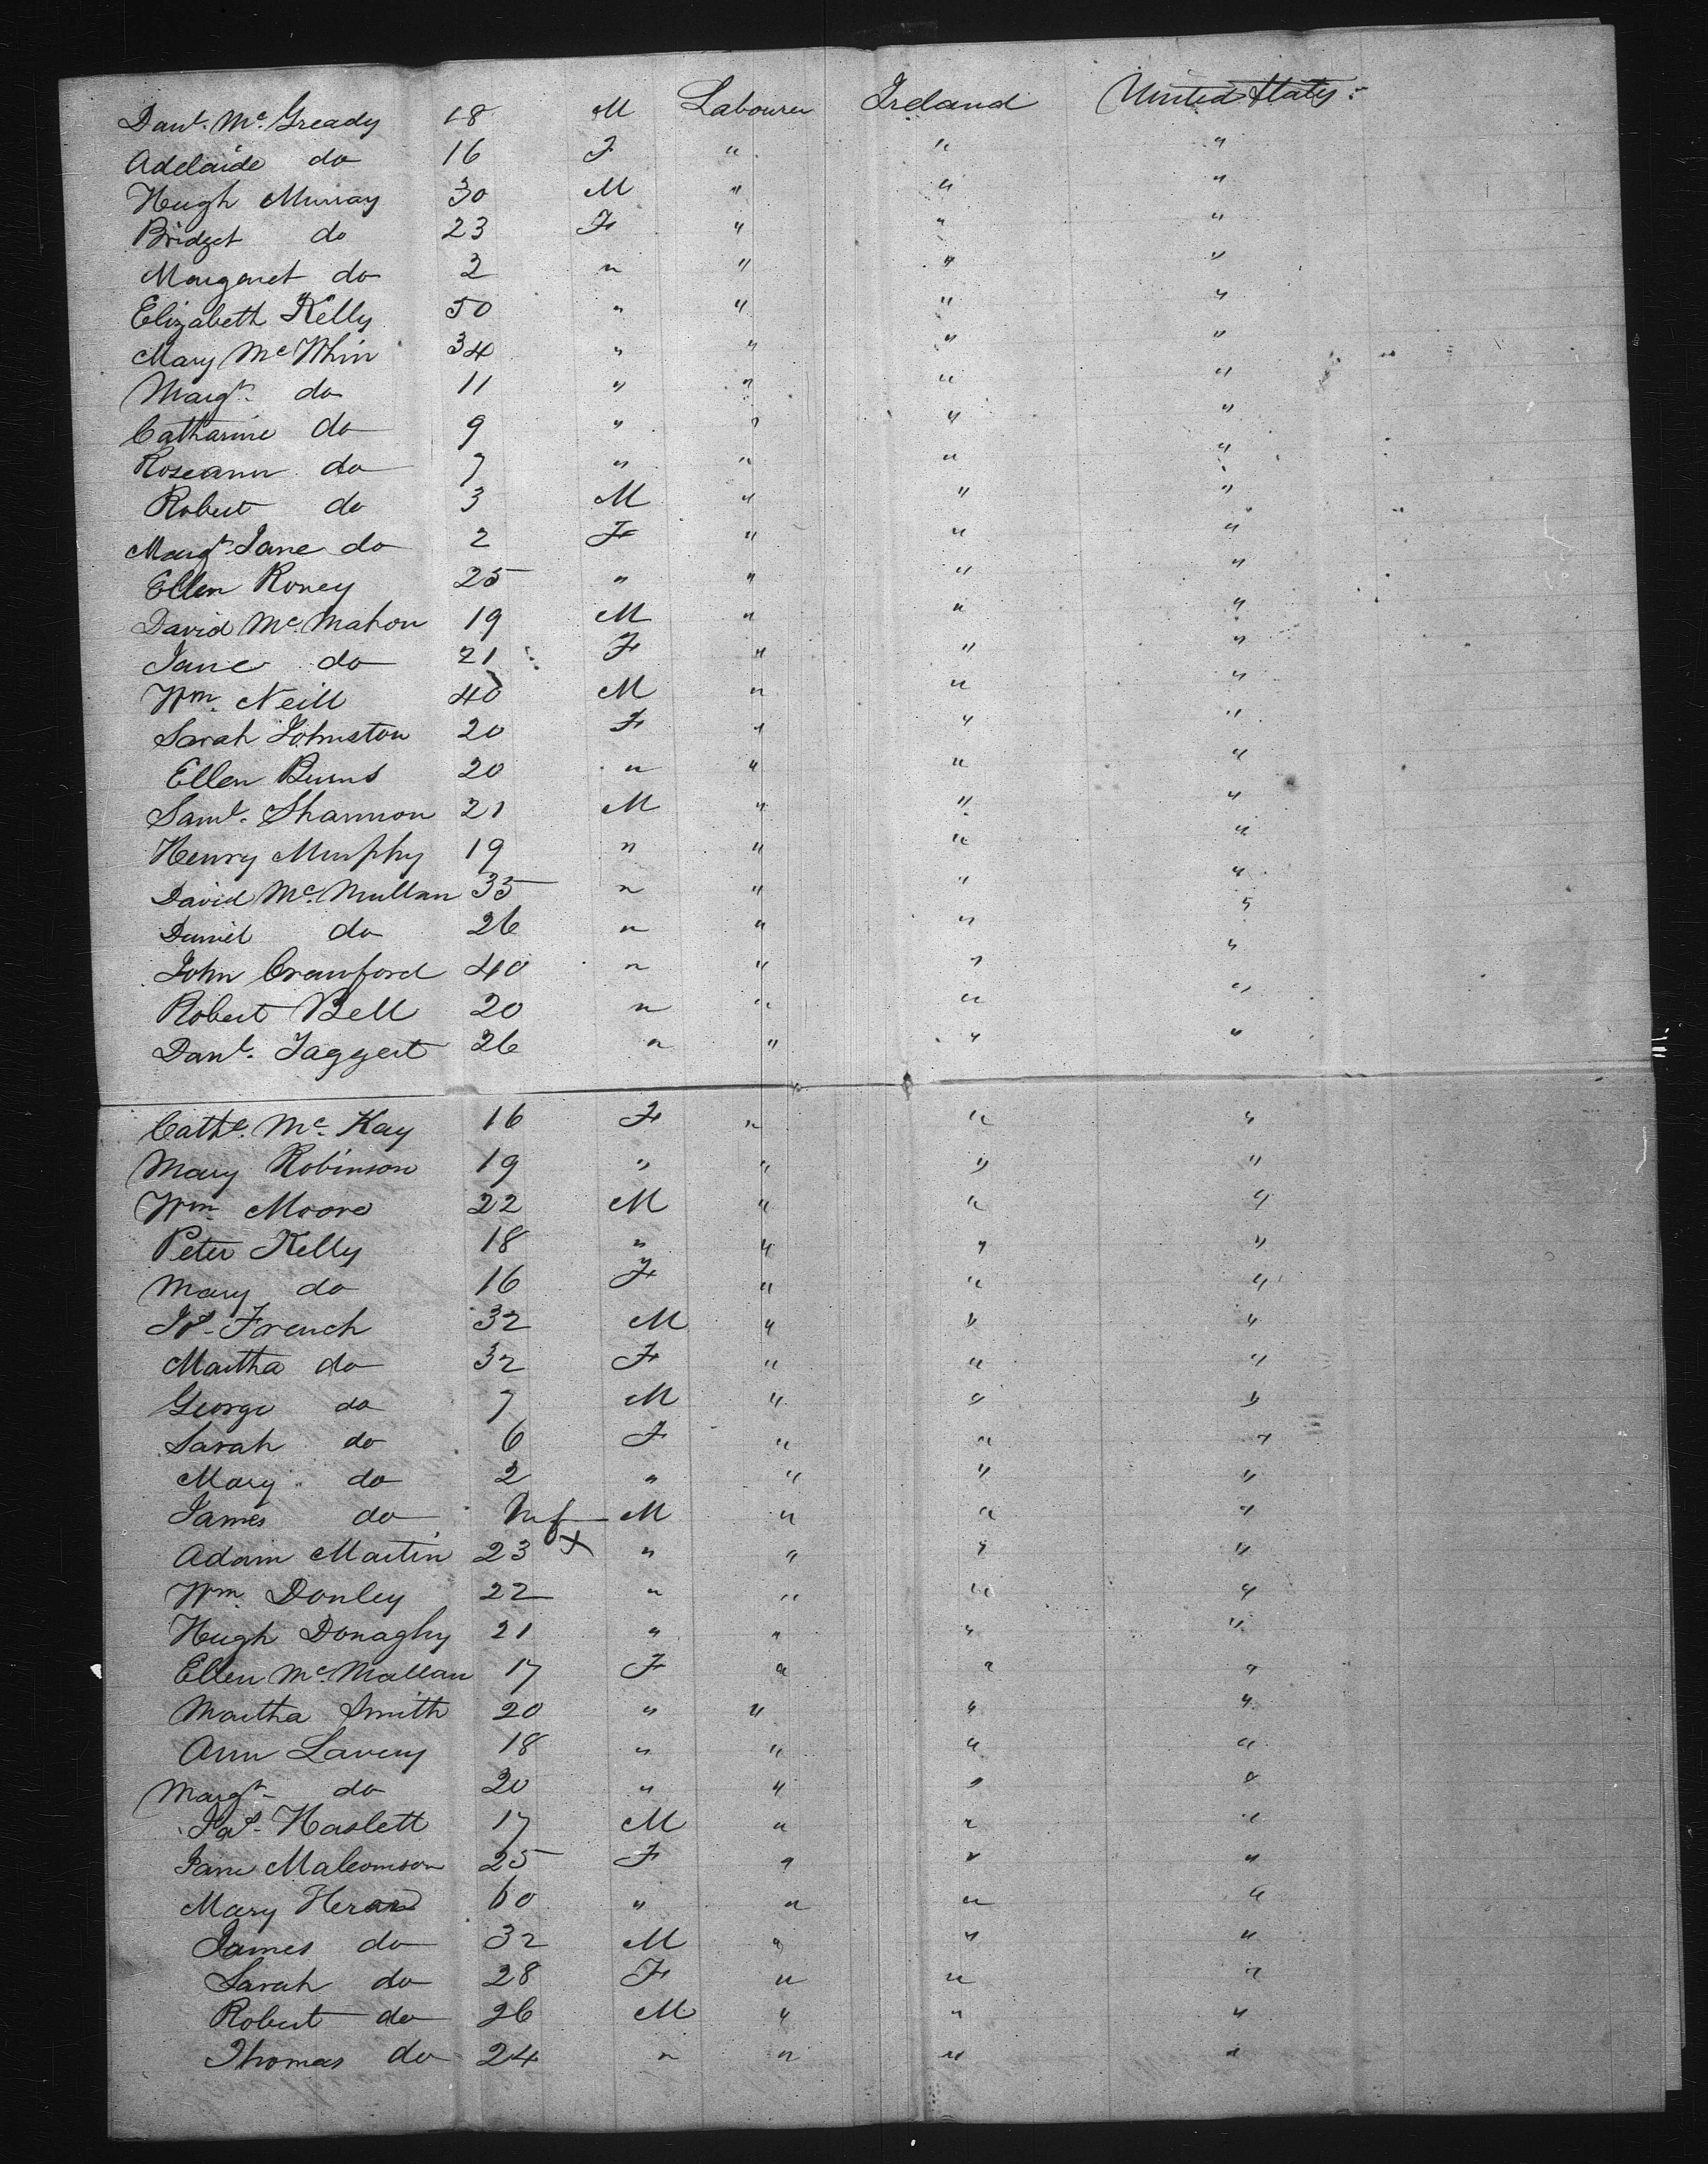 Danl. Mc. Gready 18 M Labourer Ireland United States
Adelaide do 16 F " " "
Hugh Murray 30 M " " "
Bridget do 23 F " " "
Margaret do 2 " " " "
Elizabeth Kelly 50 " " " "
Mary McWhin 34 " " " "
Margt. do 11 " " " "
Catharine do 9 " " " "
Roseann do 7 " " " "
Robert do 3 M " " "
Margt. Jane do 2 F " " "
Ellen Roney 25 " " " "
David Mc. Mahon 19 M " " "
Jane do 21 F " " "
Wm. Neill 40 M " " "
Sarah Johnston 20 F " " "
Ellen Burns 20 " " " "
Saml. Shannon 21 M " " "
Henry Murphy 19 " " " "
David Mc. Mullan 35 " " " "
Daniel do 26 " " " "
John Crawford 40 " " " "
Robert Bell 20 " " " "
Danl. Taggert 26 " " " "
Cathe. Mc. Kay 16 F " " "
Mary Robinson 19 " " " "
Wm. Moore 22 M " " "
Peter Kelly 18 " " " "
Mary do 16 F " " "
Js. French 32 M " " "
Martha do 32 F " " "
George do 7 M " " "
Sarah do 6 F " " "
Mary do 2 " " " "
James do Inf M " " "
Adam Martin 23 x " " " "
Wm. Donley 22 " " " "
Hugh Donaghy 21 " " " "
Ellen Mc. Mallan 17 F " " "
Martha Smith 20 " " " "
Ann Lavery 18 " " " "
Margt. do 20 " " " "
Jas. Haslett 17 M " " "
Jane Malcomson 25 F " " "
Mary 60 " " " "
James do 32 M " " "
Sarah do 28 F " " "
Robert do 26 M " " "
Thomas do 24 " " " "